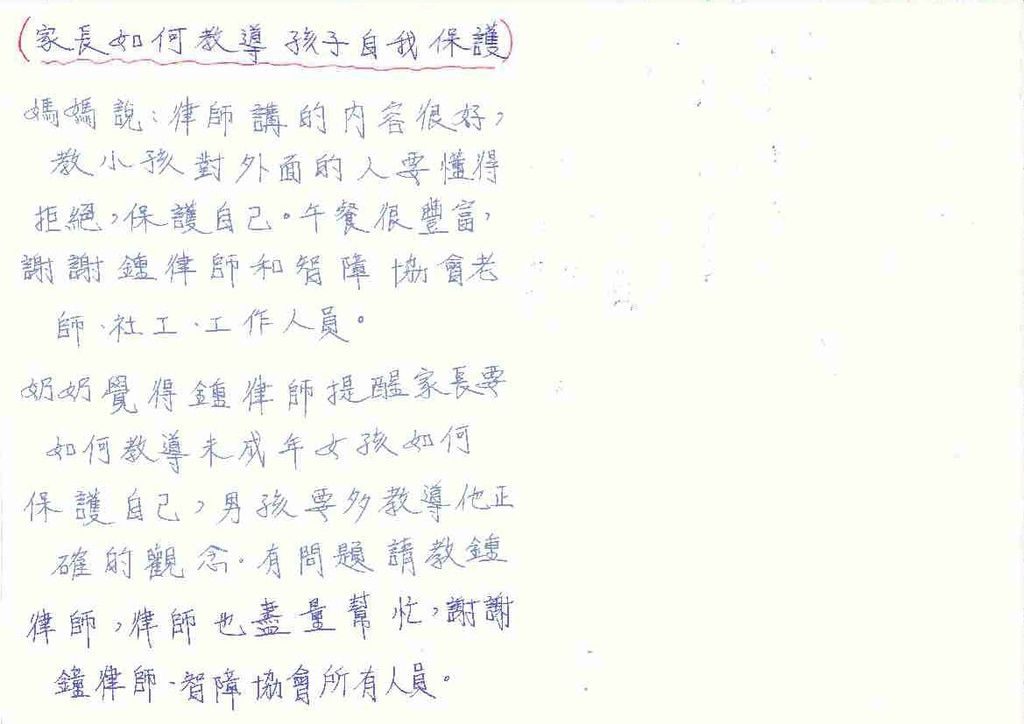 (家長如何教導孩子自我保護)
媽媽說:律師講的內容很好,
教小孩對外面的人要懂得
拒絕,保護自己。午餐很豐富,
謝謝鐘律師和智障協會老
師、社工、工作人員。
奶奶覺得鐘律師提醒家長要
如何教導未成年女孩如何
保護自己,男孩要多教導他正
確的觀念。有問題請教鐘
律師,律師也盡量幫忙,謝謝
鐘律師、智障協會所有人員。